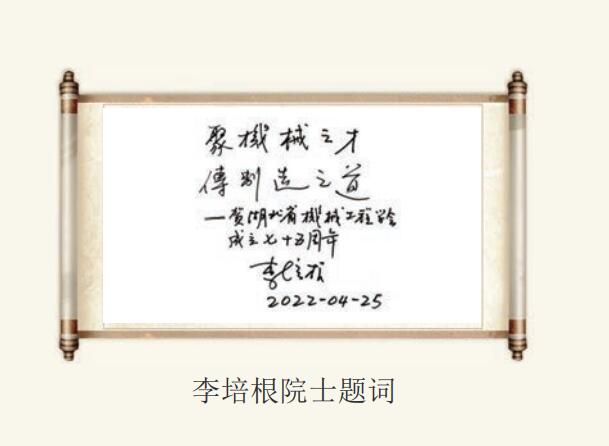 聚機械之才
傳制造之道
—贺湖北省機械工程学会
成立七十五周年
李培根
2022-04-25
李培根院士题词